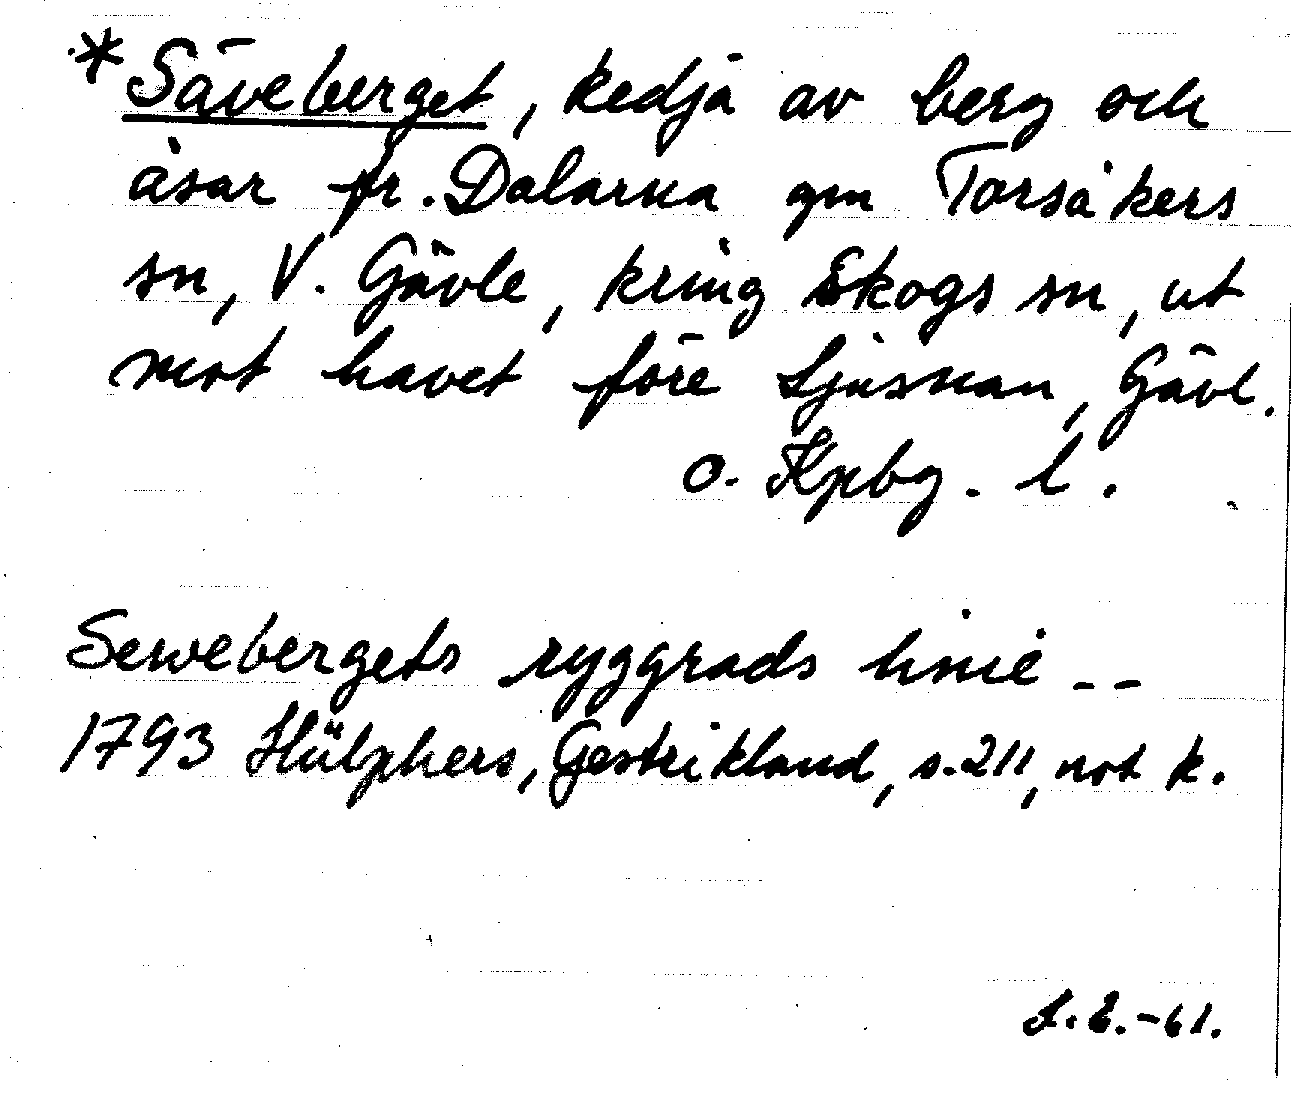 *Säveberget, kedja av berg och
åsar fr. Dalarna gm Torsåkers
sn, V. Gävle, kring Skogs sn, ut
mot havet före Ljusnan, Gävl.
o. Kpbg. l.
Sewebergets ryggrads linie --
1793 Hülphers, Gestrikland, s. 211, not k.
-61.